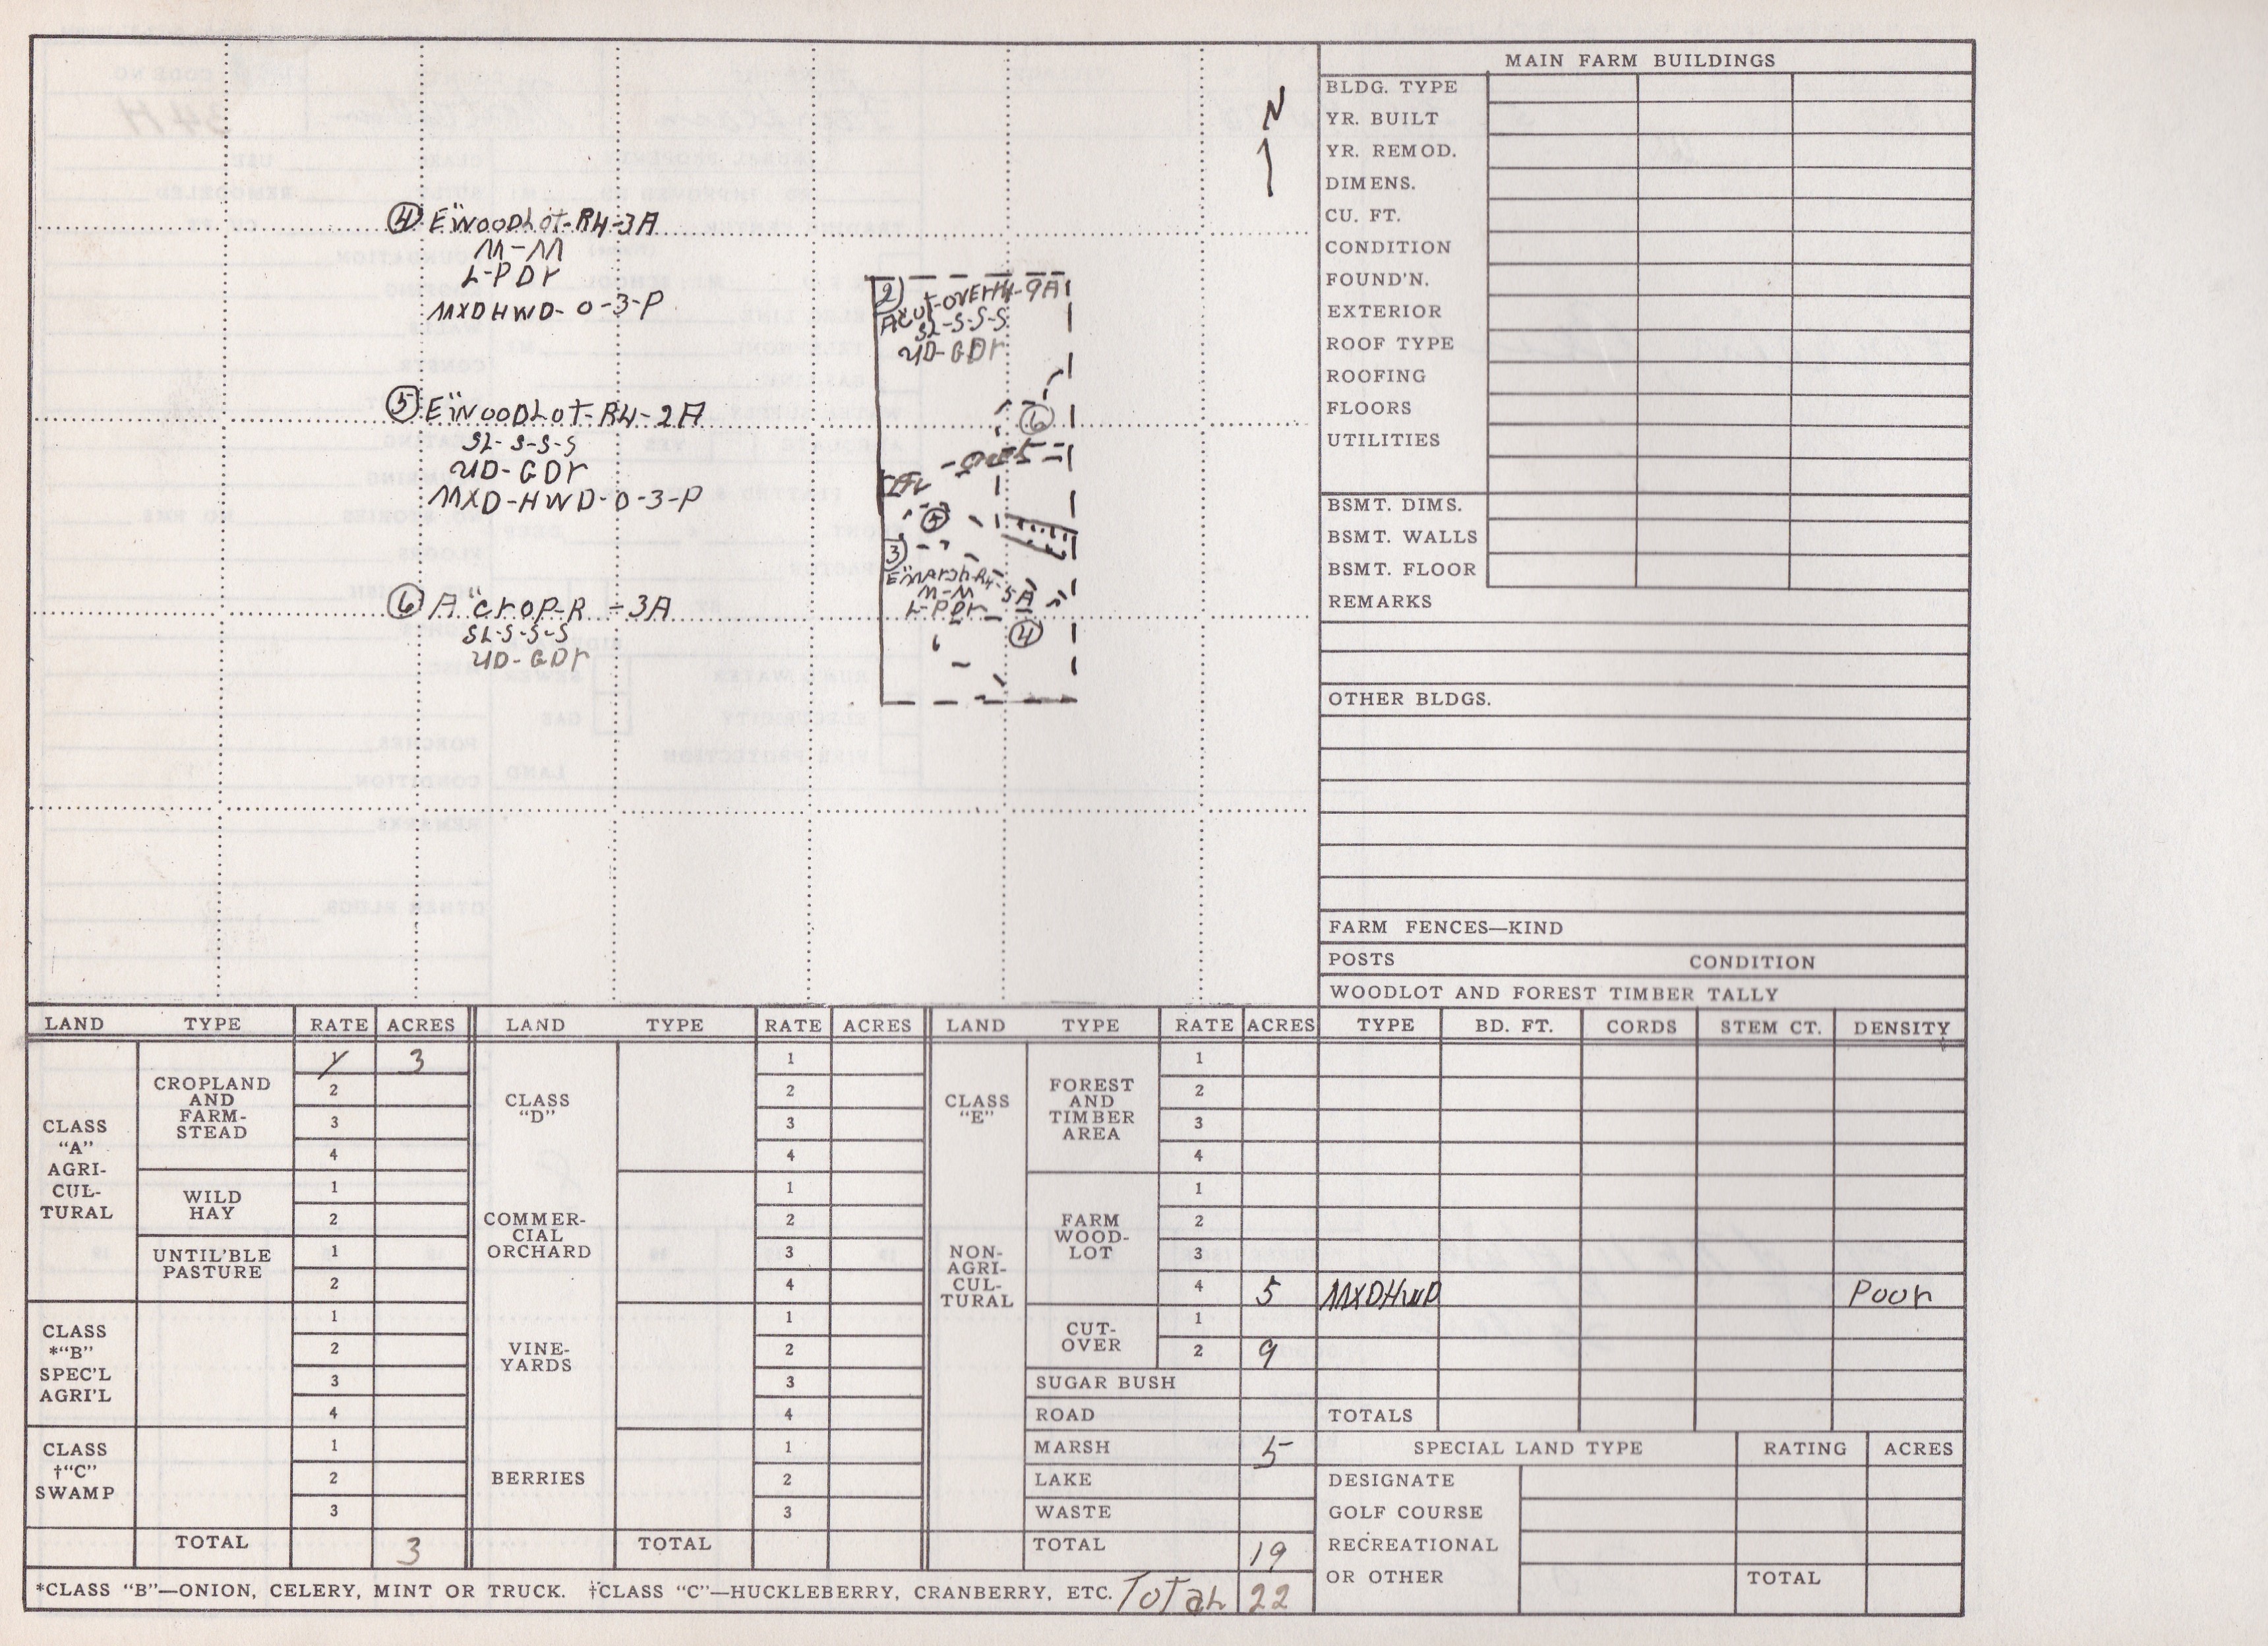 N
④ E"WOODLOT-R4-3A
M-M
L-PDr
MXDHWD-O-3-P
⑤ E"WOODLOT-R4-2A
SL-S-S-S
UD-GDr
MXD-HWD-O-3-P
⑥ A"CROP-R -3A
SL-S-S-S
UD-GDr
2)
SL-S-S-S
UD-GDr
⑥
⑤
3)
M-M
5A
L-PDr
④
MAIN FARM BUILDINGS
BLDG. TYPE
YR. BUILT
YR. REMOD.
DIMENS.
CU. FT.
CONDITION
FOUND'N.
EXTERIOR
ROOF TYPE
ROOFING
FLOORS
UTILITIES
BSMT. DIMS.
BSMT. WALLS
BSMT. FLOOR
REMARKS
OTHER BLDGS.
FARM FENCES—KIND
POSTS CONDITION
WOODLOT AND FOREST TIMBER TALLY
LAND TYPE RATE ACRES LAND TYPE RATE ACRES LAND TYPE RATE ACRES TYPE BD. FT. CORDS STEM CT. DENSITY
CLASS
"A"
AGRI-
CUL-
TURAL
CROPLAND
AND
FARM-
STEAD
1 3
2
3
4
WILD
HAY
1
2
UNTIL'BLE
PASTURE
1
2
CLASS
*"B"
SPEC'L
AGRI'L
1
2
3
4
CLASS
†"C"
SWAMP
1
2
3
TOTAL 3
CLASS
"D"
1
2
3
4
COMMER-
CIAL
ORCHARD
1
2
3
4
VINE-
YARDS
1
2
3
4
BERRIES
1
2
3
TOTAL
CLASS
"E"
NON-
AGRI-
CUL-
TURAL
FOREST
AND
TIMBER
AREA
1
2
3
4
FARM
WOOD-
LOT
1
2
3
4 5 MXDHWD Poor
CUT-
OVER
1
2 9
SUGAR BUSH
ROAD
MARSH 5
LAKE
WASTE
TOTAL 19
TOTALS
SPECIAL LAND TYPE RATING ACRES
DESIGNATE
GOLF COURSE
RECREATIONAL
OR OTHER TOTAL
*CLASS "B"—ONION, CELERY, MINT OR TRUCK. †CLASS "C"—HUCKLEBERRY, CRANBERRY, ETC. Total 22